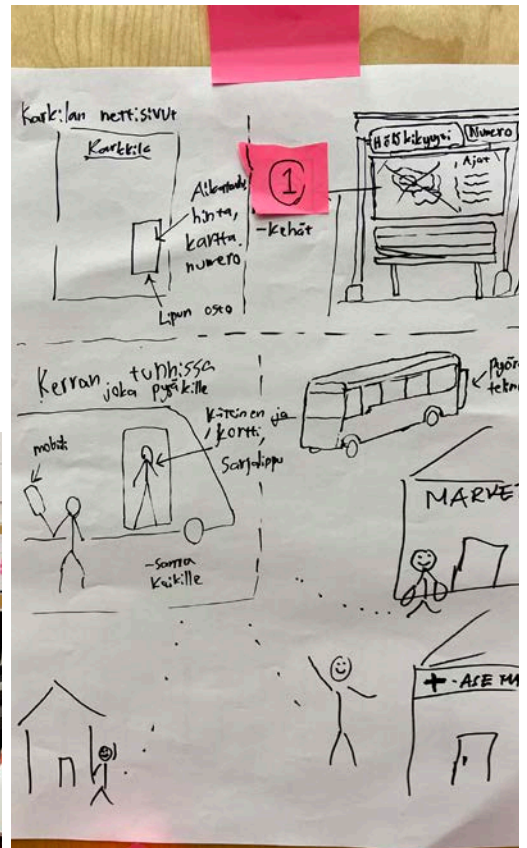 Karkilan nettisivut
Karkkila
Aikataulu,
hinta,
kartta,
numero
Lipun osto
1
-kehät
Numero
Ajat
Kerran joka tunnissa
pyäkille
mobiili
käteinen ja
kortti,
Sarjalippu
-sama
kaikille
MARKET
+-ASEMA